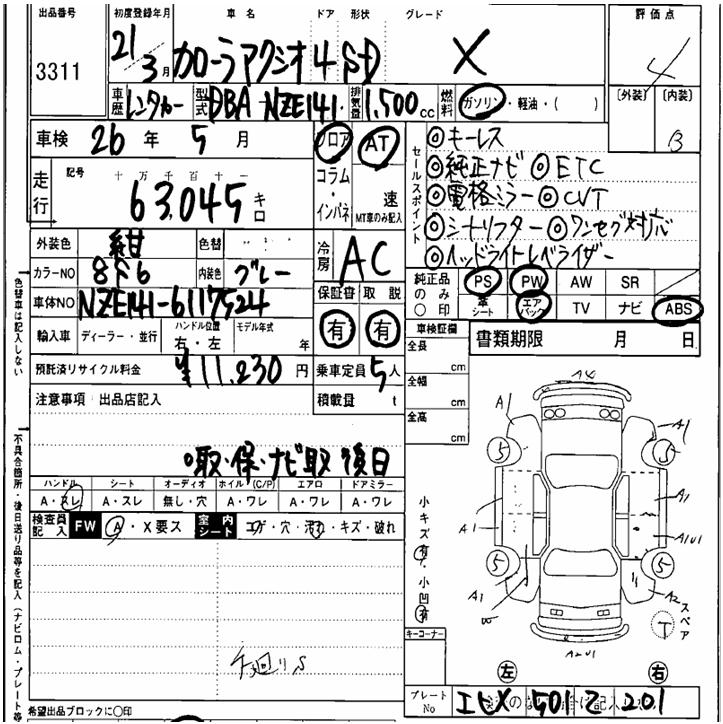 出品番号 初度登録年月 車名 ドア 形状 グレード 評価点
3311 21/3月 カローラアクシオ 4 SD X 4
車歴 レンタカー 型式 DBA-NZE141 排気量 1,500cc 燃料 ガソリン・軽油・( ) 〔外装〕 〔内装〕 B
車検 26年 5月 フロア AT
コラム・インパネ 速 MT車のみ記入
走行 記号 十万千百十一
63,045 キロ
セールスポイント
◎キーレス
◎純正ナビ ◎ETC
◎電格ミラー ◎CVT
◎シートリフター ◎ワンセグ対応
◎ヘッドライトレベライザー
外装色 紺 色替 冷房 AC
カラーNO 8F6 内装色 グレー
車体NO NZE141-6117524
保証書 取説
有 有
純正品のみ〇印 PS PW AW SR
革シート エアバック TV ナビ ABS
輸入車 ディーラー・並行 ハンドル位置 右・左 モデル年式 年
車検証欄 書類期限 月 日
全長 cm
全幅 cm
全高 cm
預託済リサイクル料金 ¥11,230円 乗車定員 5人
積載量 t
注意事項 出品店記入
取・保・ナビ取 後日
ハンドル シート オーディオ ホイル(C/P) エアロ ドアミラー
A・スレ A・スレ 無し・穴 A・ワレ A・ワレ A・ワレ
検査員記入 FW A・X要ス 室内シート コゲ・穴・汚れ・キズ・破れ
小キズ有・小凹有
A1 A1
5 5
A1 A1
A1U1
5 5
A1 A2
W
スペア
T
A2U1
キーコーナー
左 右
プレートNo 501 201
希望出品ブロックに〇印
色替車は記入しない
不具合箇所・後日送り品等を記入(ナビロム・プレート等